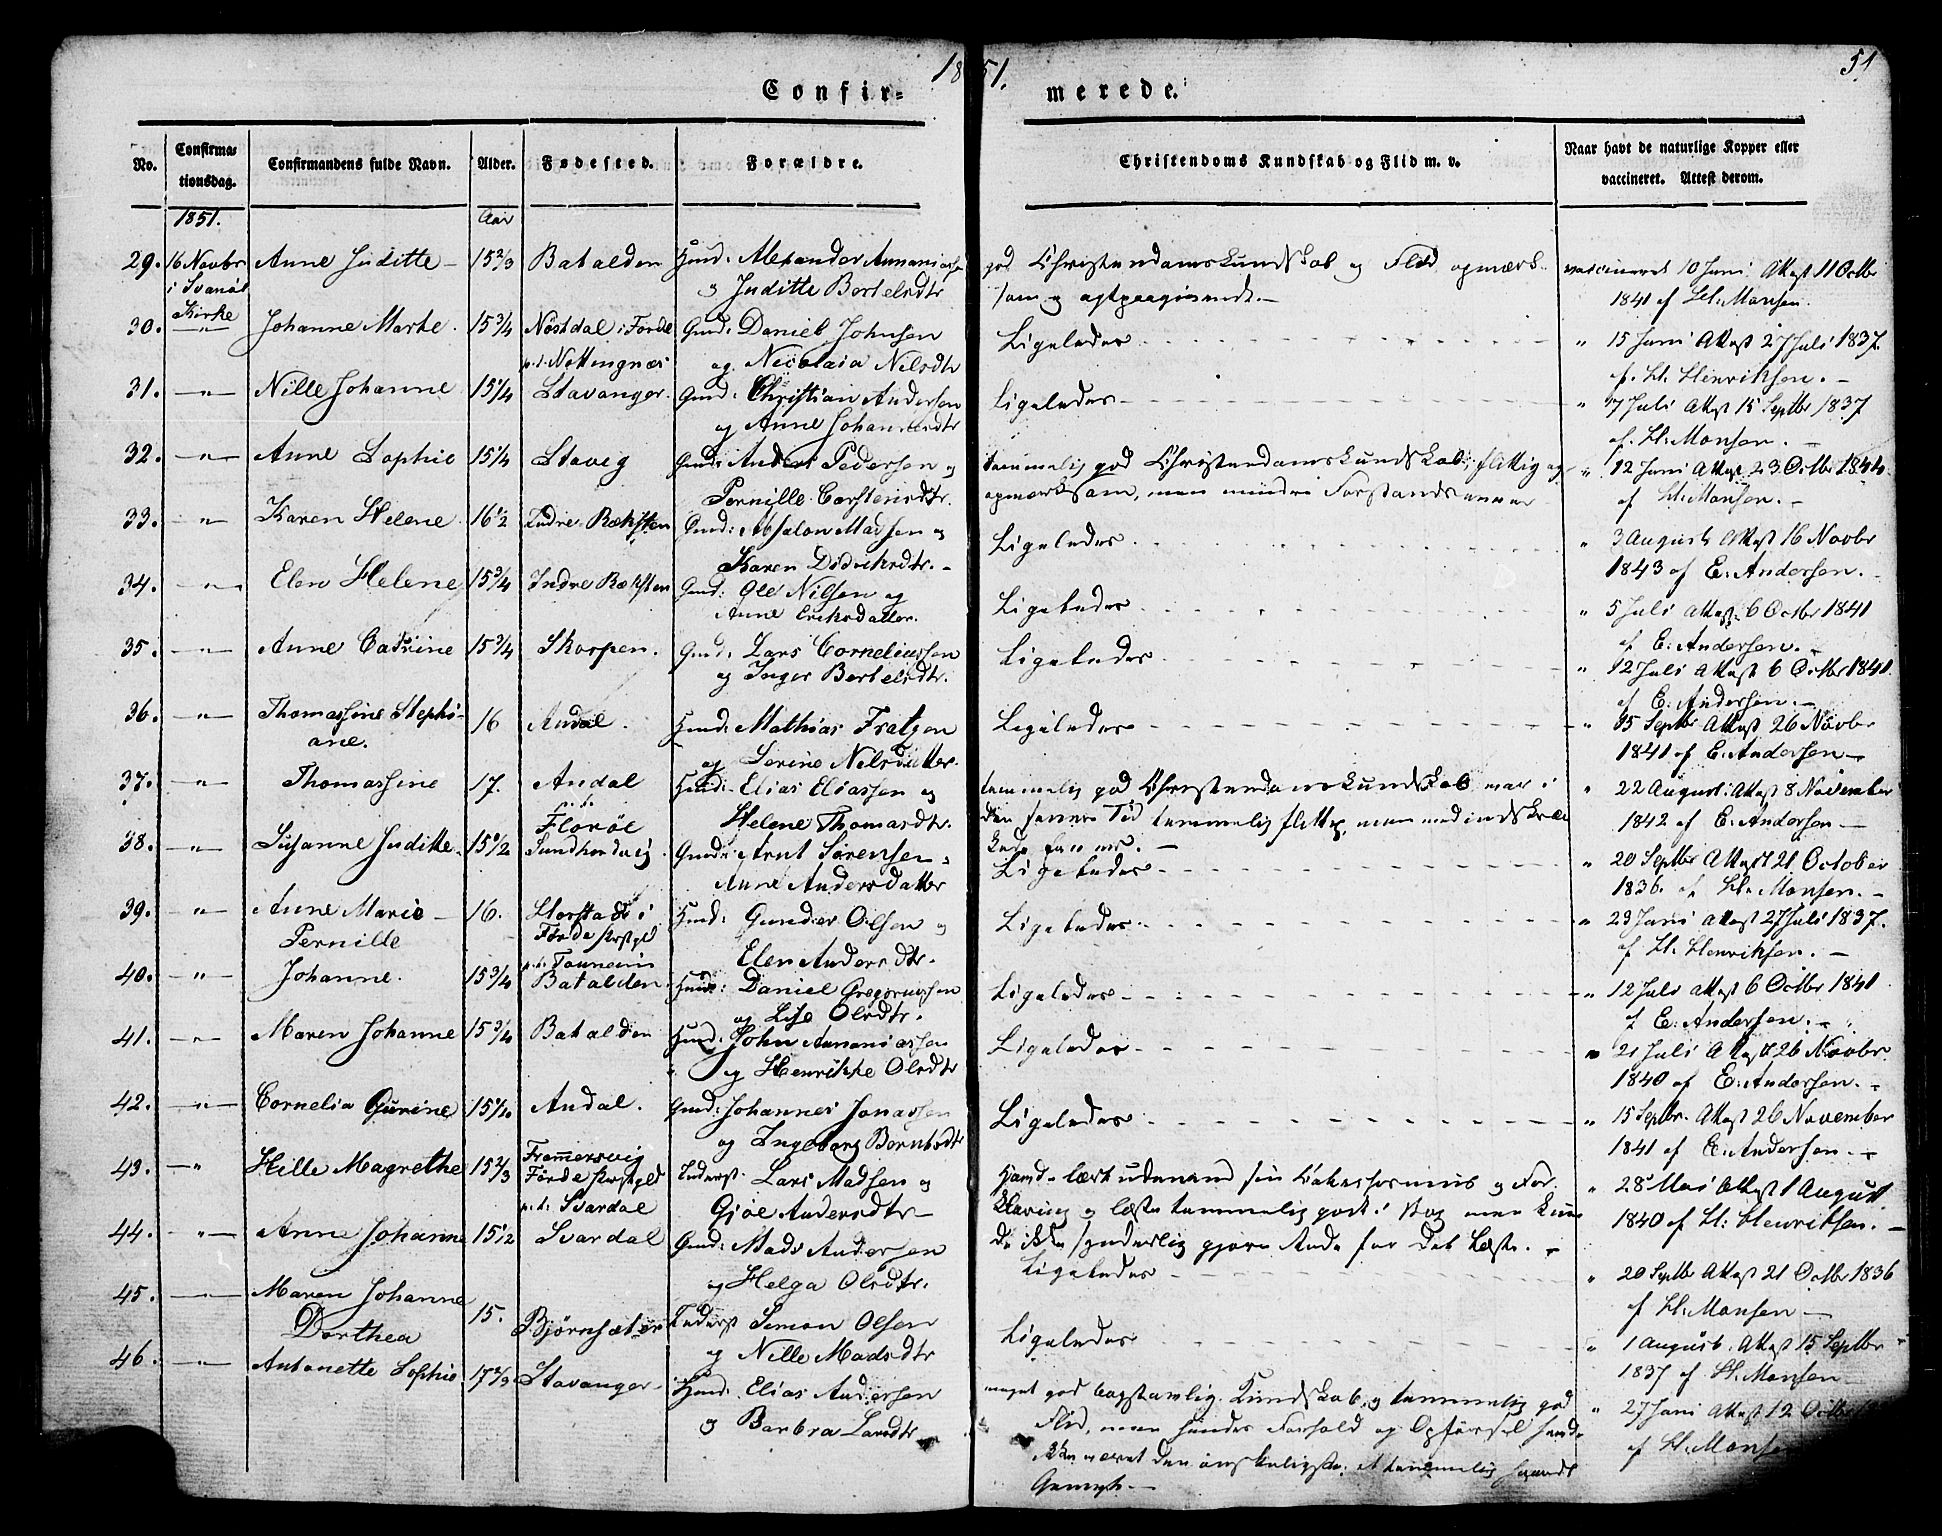 1851.
51
Confir-
merede.
No.
Confirma-
tionsdag.
Confirmandens fulde Navn.
Alder.
Fødested.
Forældre.
Christendoms Kundskab og Flid m. v.
Naar havt de naturlige Kopper eller
vaccineret. Attest derom.
1851.
Aar
29. 16 Novbr Anne Juditte 15 2/3 Batalden Gmd: Alexander Annaniassen god Christendomskundskab og Flid opmærk- vaccineret 10 Juni Attest 11 Octbr
i Svanøe og Juditte Bertelsdtr som og agtpaagivende. 1841 af H: Monsen.
Kirke
30. " Johanne Marte. 15 3/4 Nøstdal i Førde Gmd: Daniel Johnsen Ligeledes " 15 Juni Attest 27 Juli 1837.
p.t. Nøttingnæs og Nicolaia Nilsdtr af H. Henriksen.
31. " Nille Johanne 15 1/4 Stavanger. Gmd: Christian Andersen Ligeledes " 7 Juli Attest 15 Septbr 1837
og Anne Johannesdtr af H: Monsen.
32. " Anne Sophie 15 1/4 Stavig Gmd: Anders Pedersen og temmelig god Christendomskundskab, flittig og " 12 Juni Attest 23 Octbr 1844
Pernille Carstensdtr. opmærksom, men mindre Forstandsevner af H: Monsen.
33. " Karen Helene 16 1/2 Indre Ræksten Gmd: Absalon Madsen og Ligeledes " 3 August Attest 16 Novbr
Karen Didriksdtr. 1843 af E. Andersen.
34. " Elen Helene 15 3/4 Indre Ræksten Gmd: Ole Nilsen og Ligeledes " 5 Juli Attest 6 Octbr 1841
Anne Eriksdatter. af E: Andersen.
35. " Anne Catrine 15 3/4 Skorpen. Gmd: Lars Corneliussen Ligeledes " 12 Juli Attest 6 Octbr 1841
og Inger Bertelsdtr. af E. Andersen.
36. " Thomassine Stephi- 16 Andal. Hmd: Mathias Ligeledes " 15 Septbr Attest 26 Novbr
ane. og Serine Nilsdatter. 1841 af E. Andersen
37. " Thomassine 17. Andal Hmd: Elias Eliassen og temmelig god Christendomskundskab, var i " 22 August: Attest 8 November
Helene Thomasdtr. den senere Tid temmelig flittig, men med indskræn- 1842 af E. Andersen
38. " Susanne Juditte. 15 1/2 Florøe Gmd: Arnt Sørensen kede Evner.
Anne Andersdatter Ligeledes " 20 Septbr Attest 21 October
1836. af H: Monsen.
39. " Anne Marie 16. Storstad i Hmd: Gunder Olsen og Ligeledes " 23 Juni Attest 27 Juli 1837.
Pernille Førde Præstgld Elen Andersdtr. af H. Henriksen.
40. " Johanne. 15 3/4 Batalden Hmd: Daniel Gregoriussen Ligeledes " 12 Juli Attest 6 Octbr 1841
og Lise Olsdtr. af E: Andersen.
41. " Maren Johanne 15 3/4 Batalden Hmd: John Annaniassen Ligeledes " 21 Juli Attest 26 Novbr
og Henrikke Olsdtr 1840 af E. Andersen.
42. " Cornelia Gurine Andal. Gmd: Johannes Jonassen Ligeledes " 15 Septbr. Attest 26 November
og Ingeborg Berntsdtr 1841 af E: Andersen.
43. " Hille Magrethe 15 2/3 Frammersvig Inderst: Lars Madsen og Havde lært udenad sin Catechismus og For- " 28 Mai Attest 1 August
Førde Præstgld Gjøe Andersdtr klaring og læste temmelig godt i Bog men kun- 1840 af H: Henriksen.
p.t. Svardal de ikke synderlig gjøre Rede for det Læste.
44. " Anne Johanne 15 1/2 Svardal Gmd: Mads Andersen Ligeledes " 20 Septbr Attest 21 Octbr 1836
og Helga Olsdtr. af H: Monsen
45. " Maren Johanne 15. Bjørnsæter Inderst Simon Olsen Ligeledes " 1 August. Attest 15 Septbr
Dorthea og Nille Madsdtr 1837 af H. Monsen
46. " Antonette Sophie 17 2/3 Stavanger Hmd: Elias Andersen meget god bogstavlig Kundskab, og temmelig god " 27 Juni Attest 12 Octbr
og Barbra Larsdtr Flid, men hendes Forhold og Opførsel havde af H. Monsen
ikke været den ønskeligste, et temmelig
Gemyt.